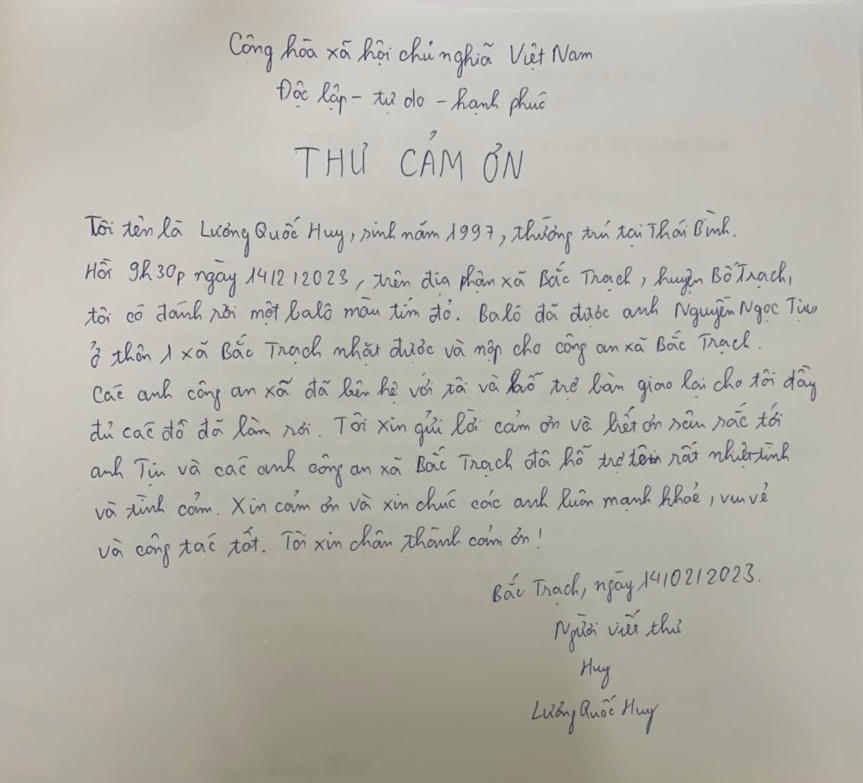 Cộng hòa xã hội chủ nghĩa Việt Nam
Độc lập - tự do - hạnh phúc
THƯ CẢM ƠN
Tôi tên là Lương Quốc Huy, sinh năm 1997, thường trú tại Thái Bình.
Hồi 9h30p ngày 14/2/2023, trên địa phận xã Bắc Trạch, huyện Bố Trạch,
tôi có đánh rơi một balô màu tím đỏ. Balô đã được anh Nguyễn Ngọc
ở thôn 1 xã Bắc Trạch nhặt được và nộp cho công an xã Bắc Trạch.
Các anh công an xã đã liên hệ với tôi và hỗ trợ bàn giao lại cho tôi đầy
đủ các đồ đã làm rơi. Tôi xin gửi lời cảm ơn và biết ơn sâu sắc tới
anh và các anh công an xã Bắc Trạch đã hỗ trợ tôi rất nhiệt tình
và tình cảm. Xin cảm ơn và xin chúc các anh luôn mạnh khoẻ, vui vẻ
và công tác tốt. Tôi xin chân thành cảm ơn!
Bắc Trạch, ngày 14/02/2023.
Người viết thư
Huy
Lương Quốc Huy